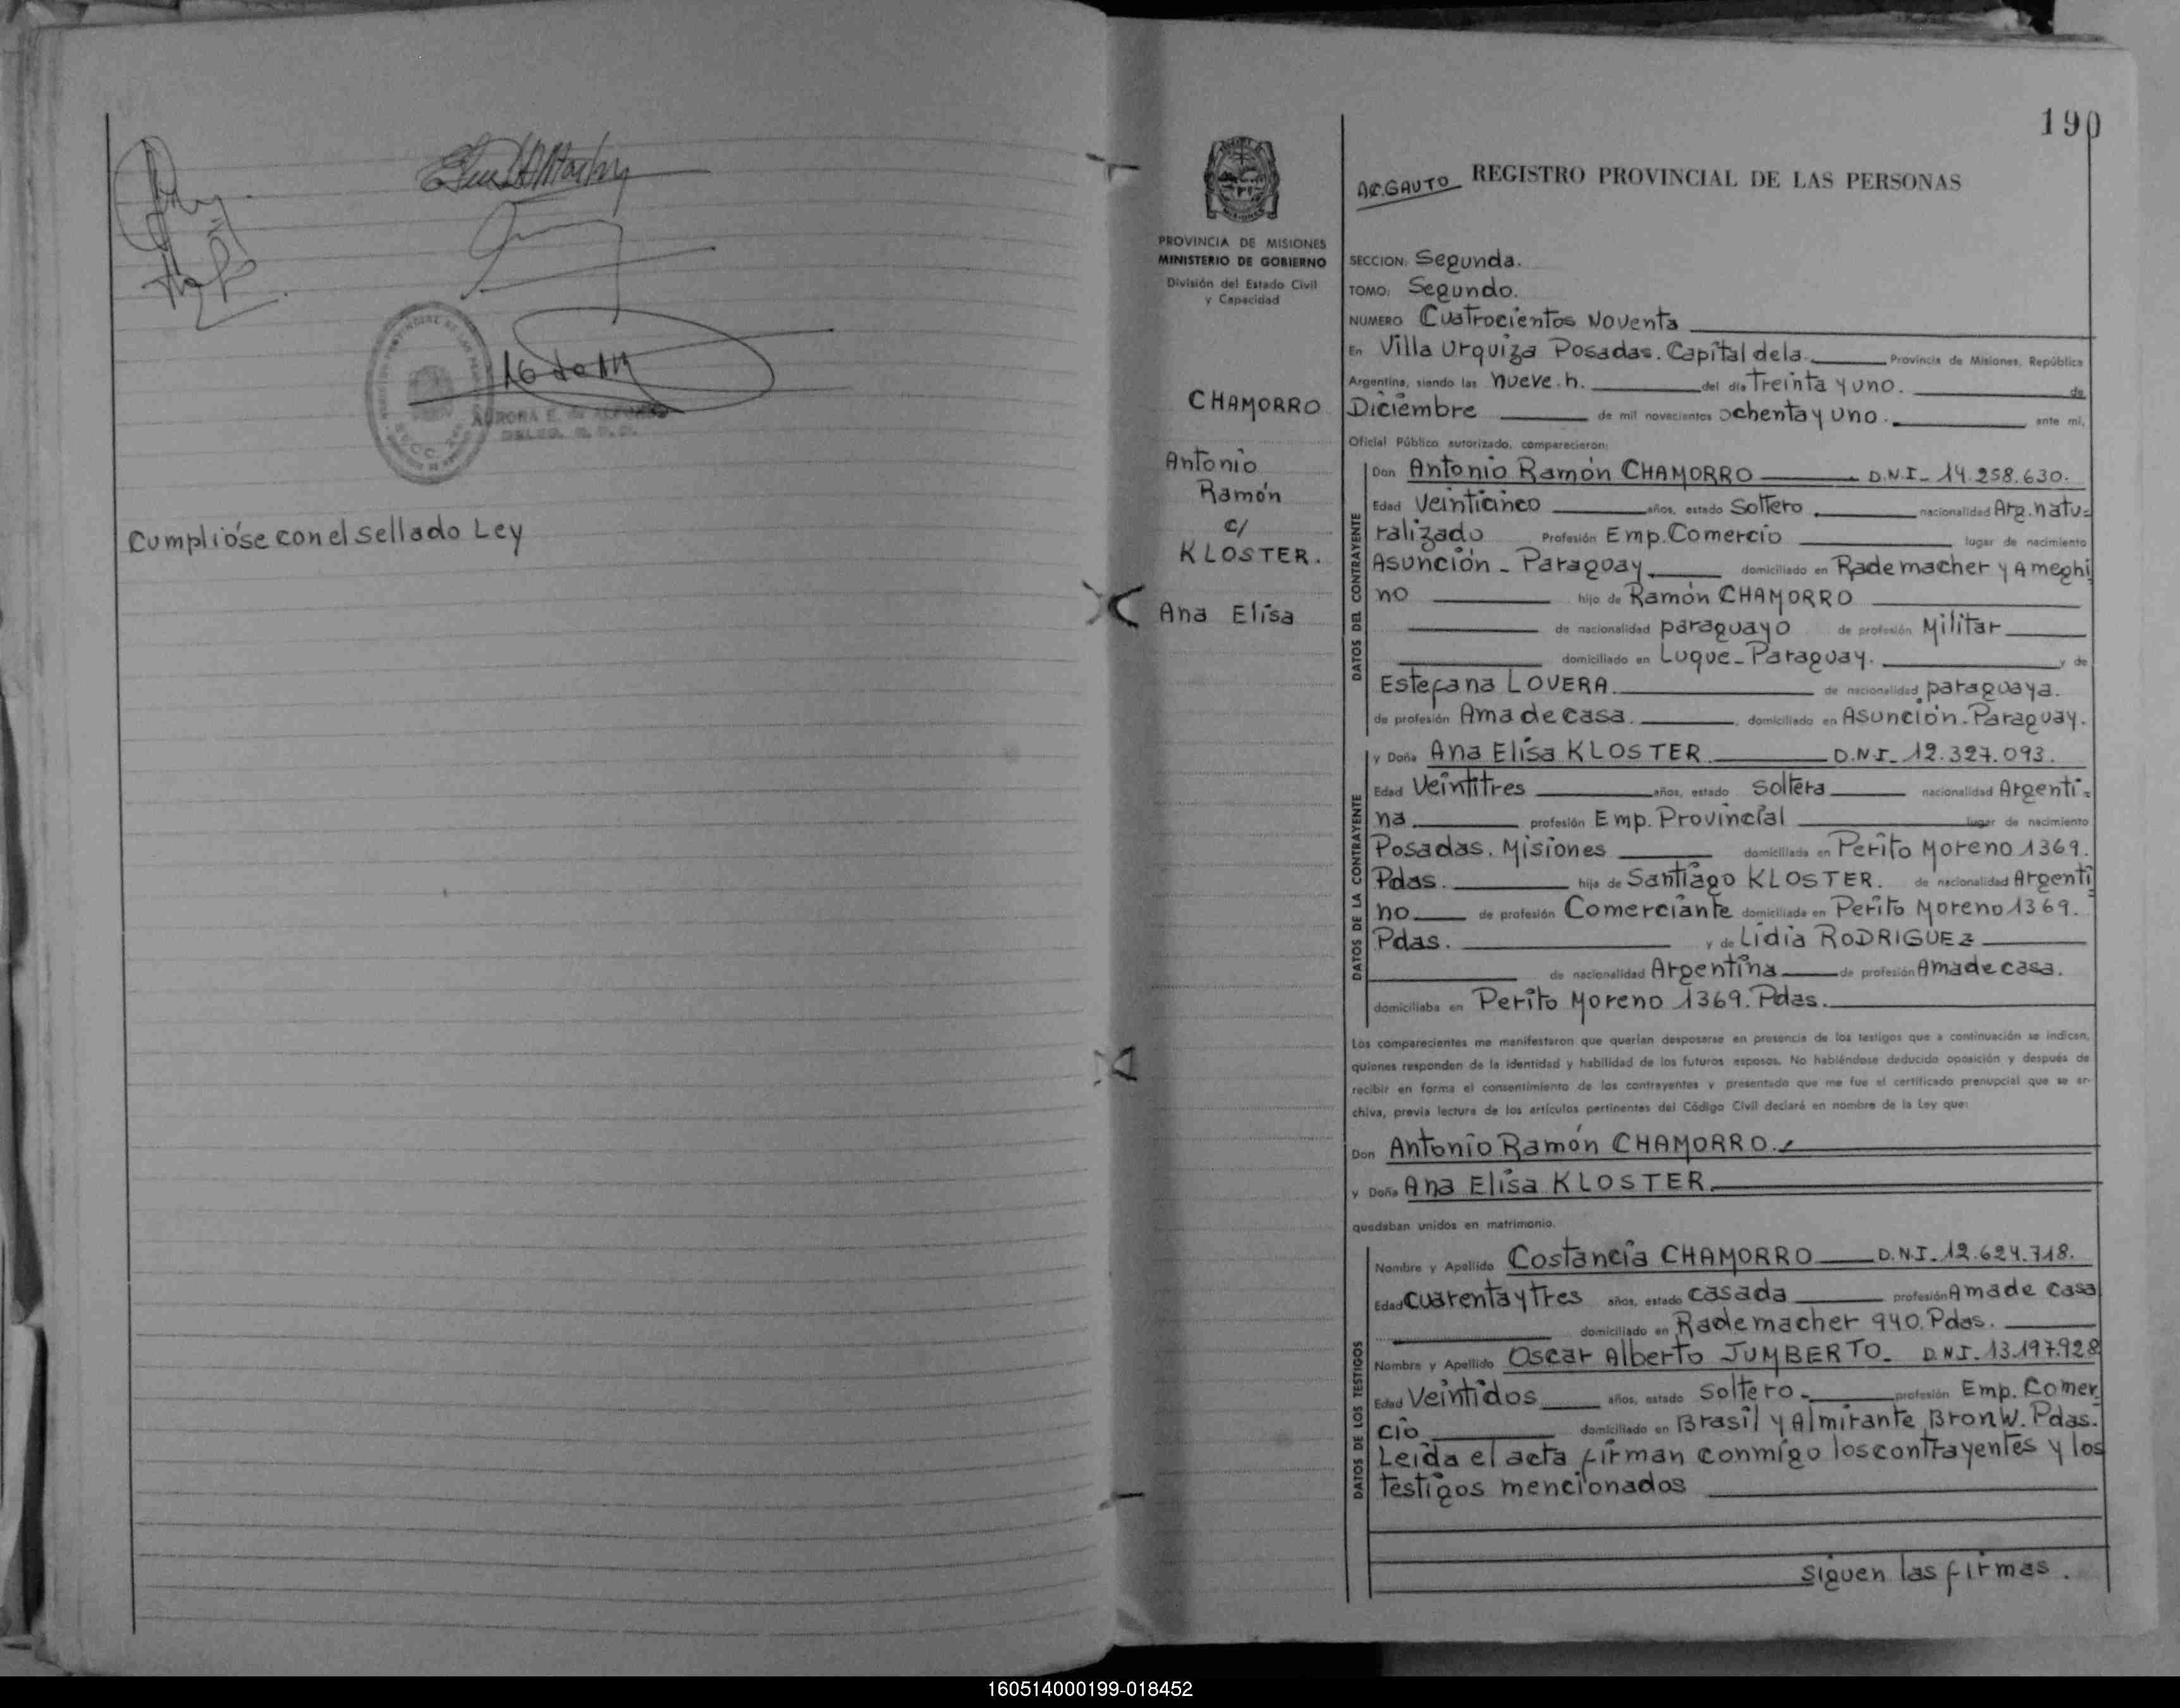 16 de
AURORA E. de ALFONSO
DELEG. R. P. P.
Cumplióse con el sellado Ley
190
PROVINCIA DE MISIONES
MINISTERIO DE GOBIERNO
División del Estado Civil
y Capacidad
CHAMORRO
Antonio
Ramón
c/
KLOSTER.
Ana Elisa
AC. GAUTO REGISTRO PROVINCIAL DE LAS PERSONAS
SECCION: Segunda.
TOMO: Segundo.
NUMERO Cuatrocientos Noventa
En Villa Urquiza Posadas. Capital de la Provincia de Misiones, República
Argentina, siendo las nueve. h. del día Treinta y uno. de
Diciembre de mil novecientos ochenta y uno. ante mí,
Oficial Público autorizado, comparecieron:
DATOS DEL CONTRAYENTE
Don Antonio Ramón CHAMORRO D.N.I- 14.258.630.
Edad Veinticinco años, estado Soltero nacionalidad Arg. natu=
ralizado Profesión Emp. Comercio lugar de nacimiento
Asunción - Paraguay domiciliado en Rademacher y Ameghi
no hijo de Ramón CHAMORRO
de nacionalidad paraguayo de profesión Militar
domiciliado en Luque - Paraguay. y de
Estefana LOVERA. de nacionalidad paraguaya.
de profesión Ama de casa. domiciliada en Asunción - Paraguay.
DATOS DE LA CONTRAYENTE
y Doña Ana Elisa KLOSTER D.N.I- 12.327.093.
Edad Veintitres años, estado Soltera nacionalidad Argenti=
na profesión Emp. Provincial lugar de nacimiento
Posadas. Misiones domiciliada en Perito Moreno 1369.
Pdas. hija de Santiago KLOSTER. de nacionalidad Argenti
no de profesión Comerciante domiciliado en Perito Moreno 1369.
Pdas. y de Lidia RODRIGUEZ
de nacionalidad Argentina de profesión Ama de casa.
domiciliaba en Perito Moreno 1369. Pdas.
Los comparecientes me manifestaron que querían desposarse en presencia de los testigos que a continuación se indican,
quienes responden de la identidad y habilidad de los futuros esposos. No habiéndose deducido oposición y después de
recibir en forma el consentimiento de los contrayentes y presentado que me fue el certificado prenupcial que se ar-
chiva, previa lectura de los artículos pertinentes del Código Civil declaré en nombre de la Ley que:
Don Antonio Ramón CHAMORRO.
y Doña Ana Elisa KLOSTER.
quedaban unidos en matrimonio.
DATOS DE LOS TESTIGOS
Nombre y Apellido Costancia CHAMORRO D.N.I. 12.624.718.
Edad Cuarenta y tres años, estado casada profesión Ama de casa
domiciliado en Rademacher 940. Pdas.
Nombre y Apellido Oscar Alberto JUMBERTO. D.N.I. 13.197.928
Edad Veintidos años, estado Soltero. profesión Emp. Comer
cio domiciliado en Brasil y Almirante BronW. Pdas.
Leida el acta firman conmigo los contrayentes y los
testigos mencionados
siguen las firmas.
160514000199-018452